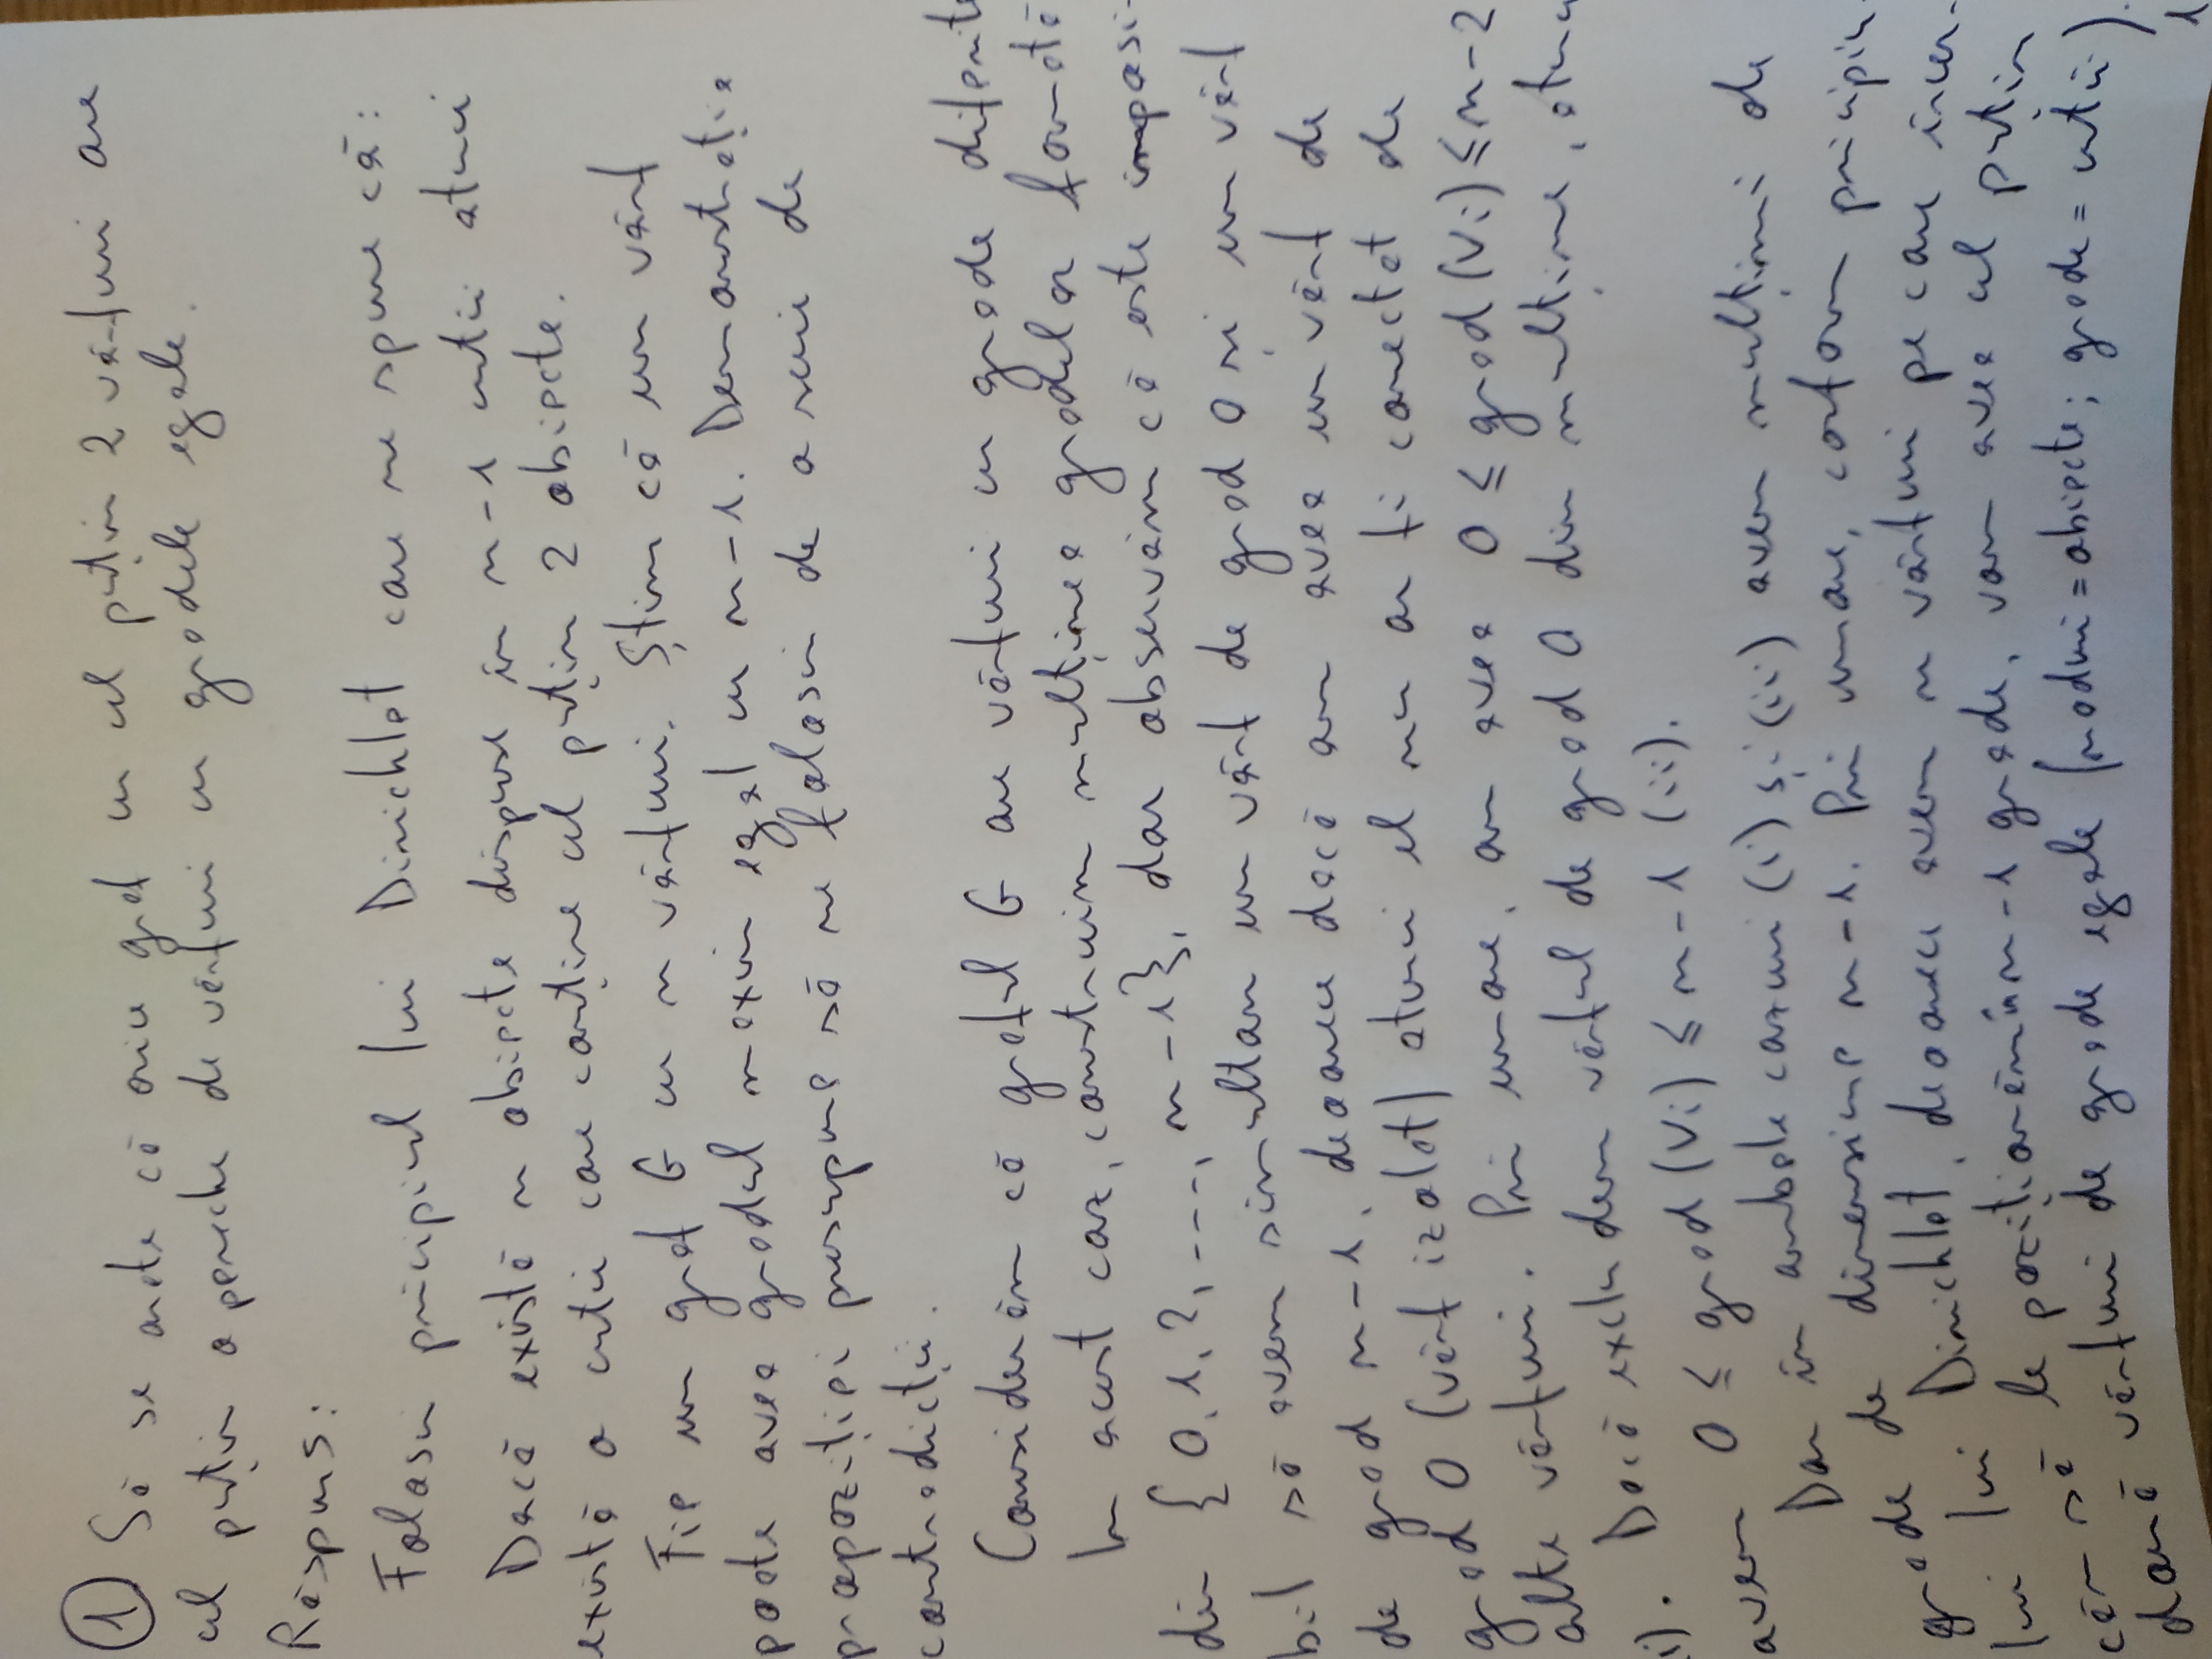 ① Să se arate că orice graf cu cel puțin 2 vârfuri are
cel puțin o pereche de vârfuri cu gradele egale.
Răspuns:
Folosim pricipiul lui Dirichlet care ne spune că:
Dacă există n obiecte dispuse în n-1 cutii atunci
există o cutie care conține cel puțin 2 obiecte.
Fie un graf G cu n vârfuri. Știm că un vârf
poate avea gradul maxim egal cu n-1. Demonstrația
propoziției presupune să ne folosim de o serie de
contradicții.
Considerăm că graful G are vârfuri cu grade diferite
În acest caz, construim mulțimea gradelor formată
din {0, 1, 2, ---, n-1}, dar observăm că este imposi-
bil să avem simultan un vârf de grad 0 și un vârf
de grad n-1, deoarece dacă am avea un vârf de
grad 0 (vârf izolat) atunci el nu ar fi conectat de
alte vârfuri. Prin urmare, am avea 0 ≤ grad (Vi) ≤ n-2
i). Dacă excludem vârful de grad 0 din mulțime, atunci
avem 0 ≤ grad (Vi) ≤ n-1 (ii).
Dar în ambele cazuri (i) și (ii) avem mulțimi de
grade de dimensiune n-1. Prin urmare, conform pricipiu-
lui lui Dirichlet, deoarece avem n vârfuri pe care încer-
căm să le poziționăm în n-1 grade, vom avea cel puțin
două vârfuri de grade egale (noduri = obiecte; grade = cutii).
1